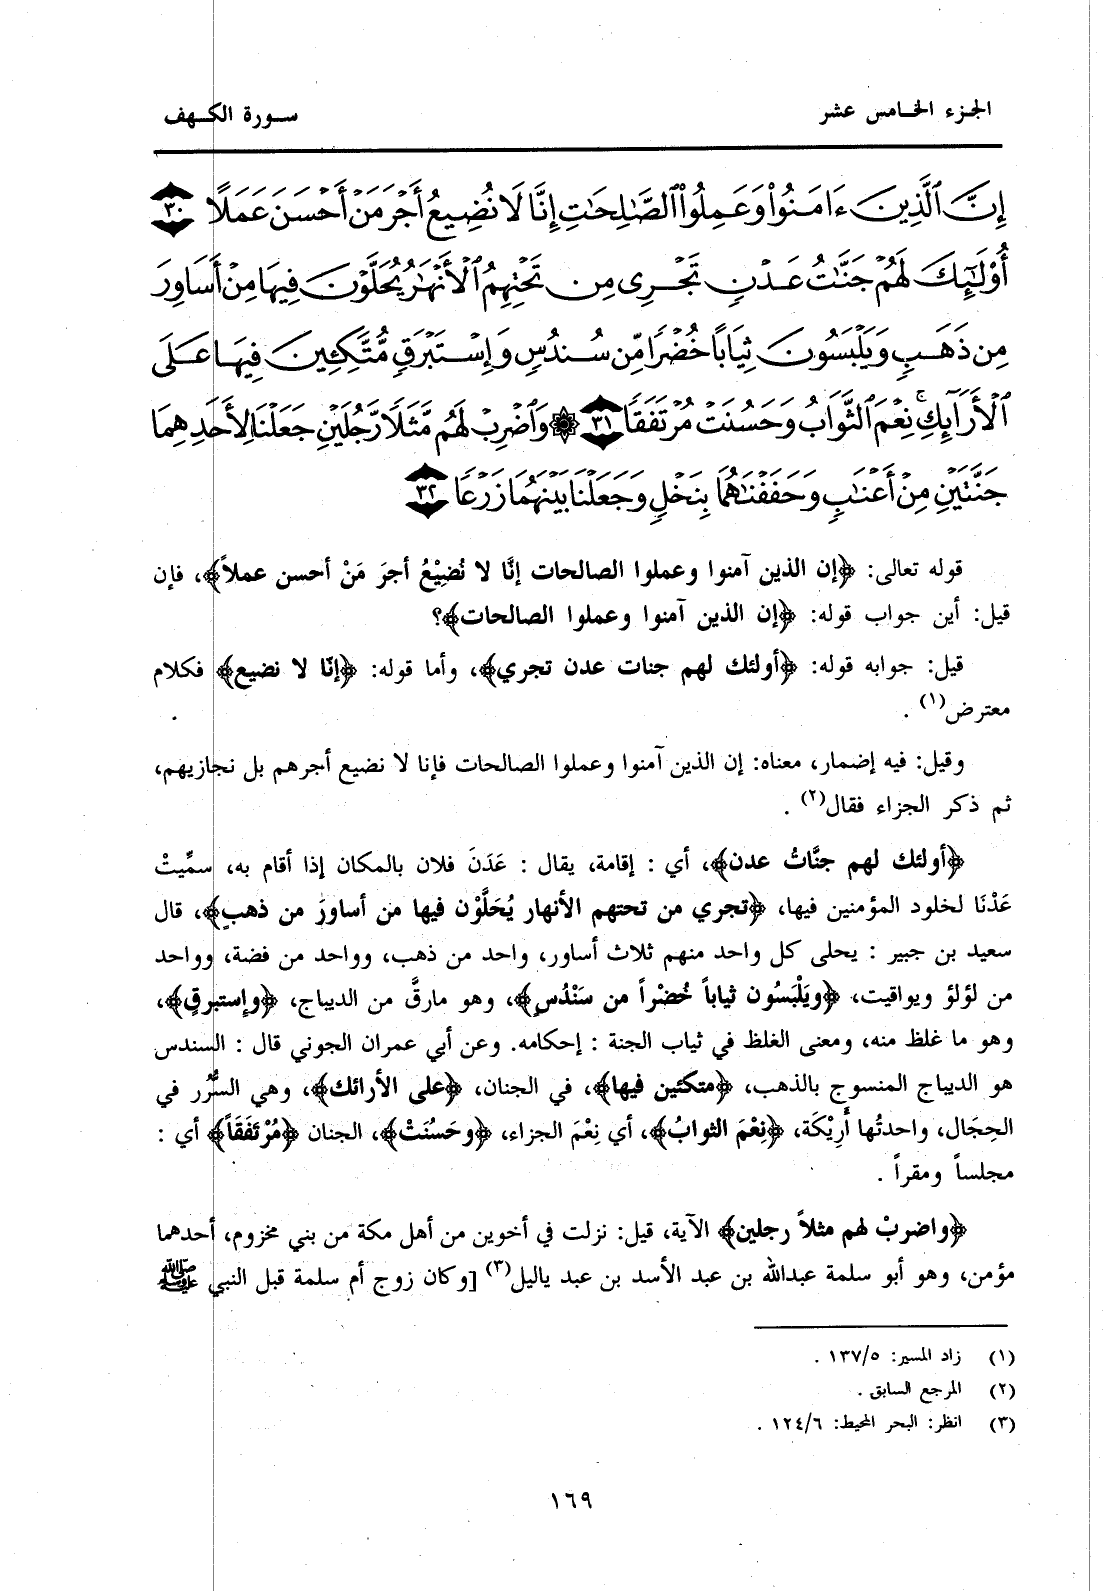 الجزء الخامس عشر
سورة الكهف
إِنَّ ٱلَّذِينَ ءَامَنُوا۟ وَعَمِلُوا۟ ٱلصَّـٰلِحَـٰتِ إِنَّا لَا نُضِيعُ أَجْرَ مَنْ أَحْسَنَ عَمَلًا ٣٠
أُو۟لَـٰٓئِكَ لَهُمْ جَنَّـٰتُ عَدْنٍ تَجْرِى مِن تَحْتِهِمُ ٱلْأَنْهَـٰرُ يُحَلَّوْنَ فِيهَا مِنْ أَسَاوِرَ
مِن ذَهَبٍ وَيَلْبَسُونَ ثِيَابًا خُضْرًا مِّن سُندُسٍ وَإِسْتَبْرَقٍ مُّتَّكِـِٔينَ فِيهَا عَلَى
ٱلْأَرَآئِكِ ۚ نِعْمَ ٱلثَّوَابُ وَحَسُنَتْ مُرْتَفَقًا ٣١ ۞ وَٱضْرِبْ لَهُم مَّثَلًا رَّجُلَيْنِ جَعَلْنَا لِأَحَدِهِمَا
جَنَّتَيْنِ مِنْ أَعْنَـٰبٍ وَحَفَفْنَـٰهُمَا بِنَخْلٍ وَجَعَلْنَا بَيْنَهُمَا زَرْعًا ٣٢
قوله تعالى: ﴿إن الذين آمنوا وعملوا الصالحات إنَّا لا نُضِيْعُ أجرَ مَنْ أحسن عملاً﴾، فإن
قيل: أين جواب قوله: ﴿إن الذين آمنوا وعملوا الصالحات﴾؟
قيل: جوابه قوله: ﴿أولئك لهم جنات عدن تجري﴾، وأما قوله: ﴿إنّا لا نضيع﴾ فكلام
معترض(١) .
وقيل: فيه إضمار، معناه: إن الذين آمنوا وعملوا الصالحات فإنا لا نضيع أجرهم بل نجازيهم،
ثم ذكر الجزاء فقال(٢) .
﴿أولئك لهم جنَّاتُ عدن﴾، أي : إقامة، يقال : عَدَنَ فلان بالمكان إذا أقام به، سمِّيتْ
عَدْنَا لخلود المؤمنين فيها، ﴿تجري من تحتهم الأنهار يُحَلَّوْن فيها من أساورَ من ذهبٍ﴾، قال
سعيد بن جبير : يحلى كل واحد منهم ثلاث أساور، واحد من ذهب، وواحد من فضة، وواحد
من لؤلؤ ويواقيت، ﴿ويَلْبَسُون ثياباً خُضْراً من سَنْدُسٍ﴾، وهو مارقَّ من الديباج، ﴿وإستبرقٍ﴾،
وهو ما غلظ منه، ومعنى الغلظ في ثياب الجنة : إحكامه. وعن أبي عمران الجوني قال : السندس
هو الديباج المنسوج بالذهب، ﴿متكئين فيها﴾، في الجنان، ﴿على الأرائك﴾، وهي السُّرُر في
الحِجَال، واحدتُها أَرِيْكَة، ﴿نِعْمَ الثوابُ﴾، أي نِعْمَ الجزاء، ﴿وحَسُنَتْ﴾، الجنان ﴿مُرْتَفَقَاً﴾ أي :
مجلساً ومقراً .
﴿واضربْ لهم مثلاً رجلين﴾ الآية، قيل: نزلت في أخوين من أهل مكة من بني مخزوم، أحدهما
مؤمن، وهو أبو سلمة عبدالله بن عبد الأسد بن عبد ياليل(٣) [وكان زوج أم سلمة قبل النبي ﷺ
(١) زاد المسير: ١٣٧/٥ .
(٢) المرجع السابق .
(٣) انظر: البحر المحيط: ١٢٤/٦ .
١٦٩